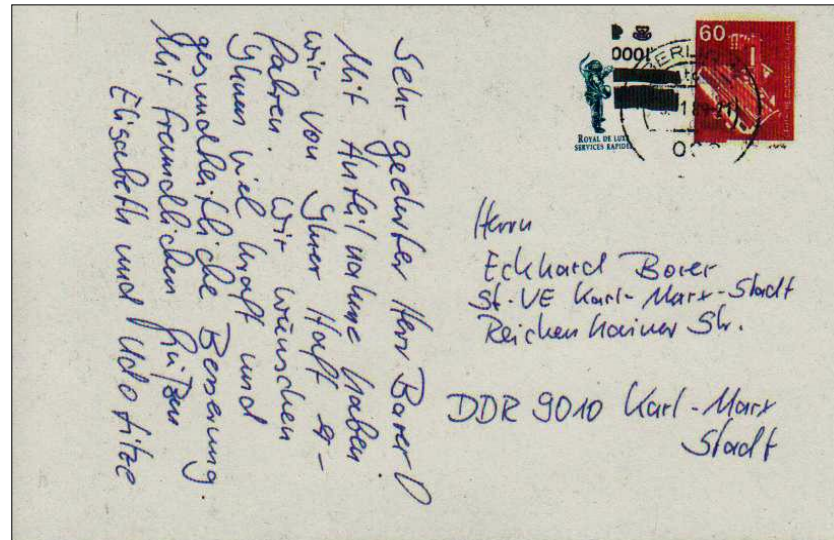 Sehr geehrter Herr Borer
Mit Anteilnahme haben
wir von Ihrer Haft er-
fahren. Wir wünschen
Ihnen viel Kraft und
gesundheitliche Besserung.
Mit freundlichen Grüßen
Elisabeth und Udo
60
ROYAL DE LUXE
SERVICES RAPIDES
Herrn
Eckhard Borer
St.-VE Karl-Marx-Stadt
Reichenhainer Str.
DDR 9010 Karl-Marx
Stadt